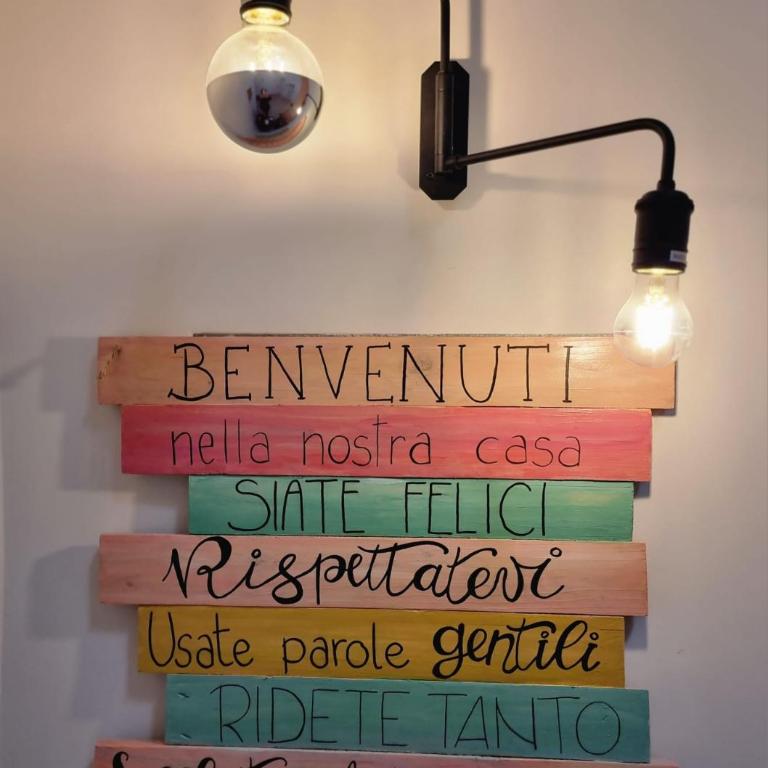 BENVENUTI
nella nostra casa
SIATE FELICI
Rispettatevi
Usate parole gentili
RIDETE TANTO